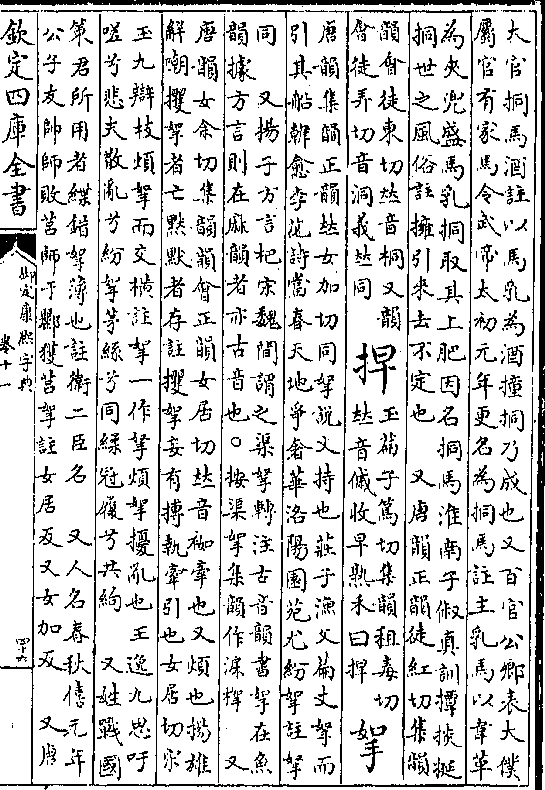 大官挏馬酒註以馬乳為酒撞挏乃成也又百官公卿表大僕
屬官有家馬令武帝太初元年更名為挏馬註主乳馬以韋革
為夾兜盛馬乳挏取其上肥因名挏馬淮南子俶真訓撢掞挻
挏世之風俗註擁引來去不定也 又唐韻正韻徒紅切集韻
韻會徒東切𠀤音桐又韻
會徒弄切音洞義𠀤同
捍
玉篇子篤切集韻租毒切
𠀤音傶收早熟禾曰捍
挐
唐韻集韻正韻𠀤女加切同拏說文持也莊子漁父篇丈挐而
引其船韓愈李花詩當春天地爭奢華洛陽園苑尤紛挐註挐
同 又揚子方言杷宋魏間謂之渠挐轉注古音韻書挐在魚
韻據方言則在麻韻者亦古音也○按渠挐集韻作㴖㭯 又
唐韻女余切集韻韻會正韻女居切𠀤音袽牽也又煩也揚雄
解嘲攫挐者亡默默者存註攫挐妄有搏執牽引也女居切宋
玉九辯枝煩挐而交橫註挐一作拏煩挐擾亂也王逸九思吁
嗟兮悲夫散亂兮紛挐茅絲兮同綜冠履兮共絇 又姓戰國
策君所用者緤錯挐薄也註衛二臣名 又人名春秋僖元年
公子友帥師敗莒師于酈獲莒挐註女居反又女加反 又唐
欽定四庫全書
御定康熙字典
卷十一
四十六